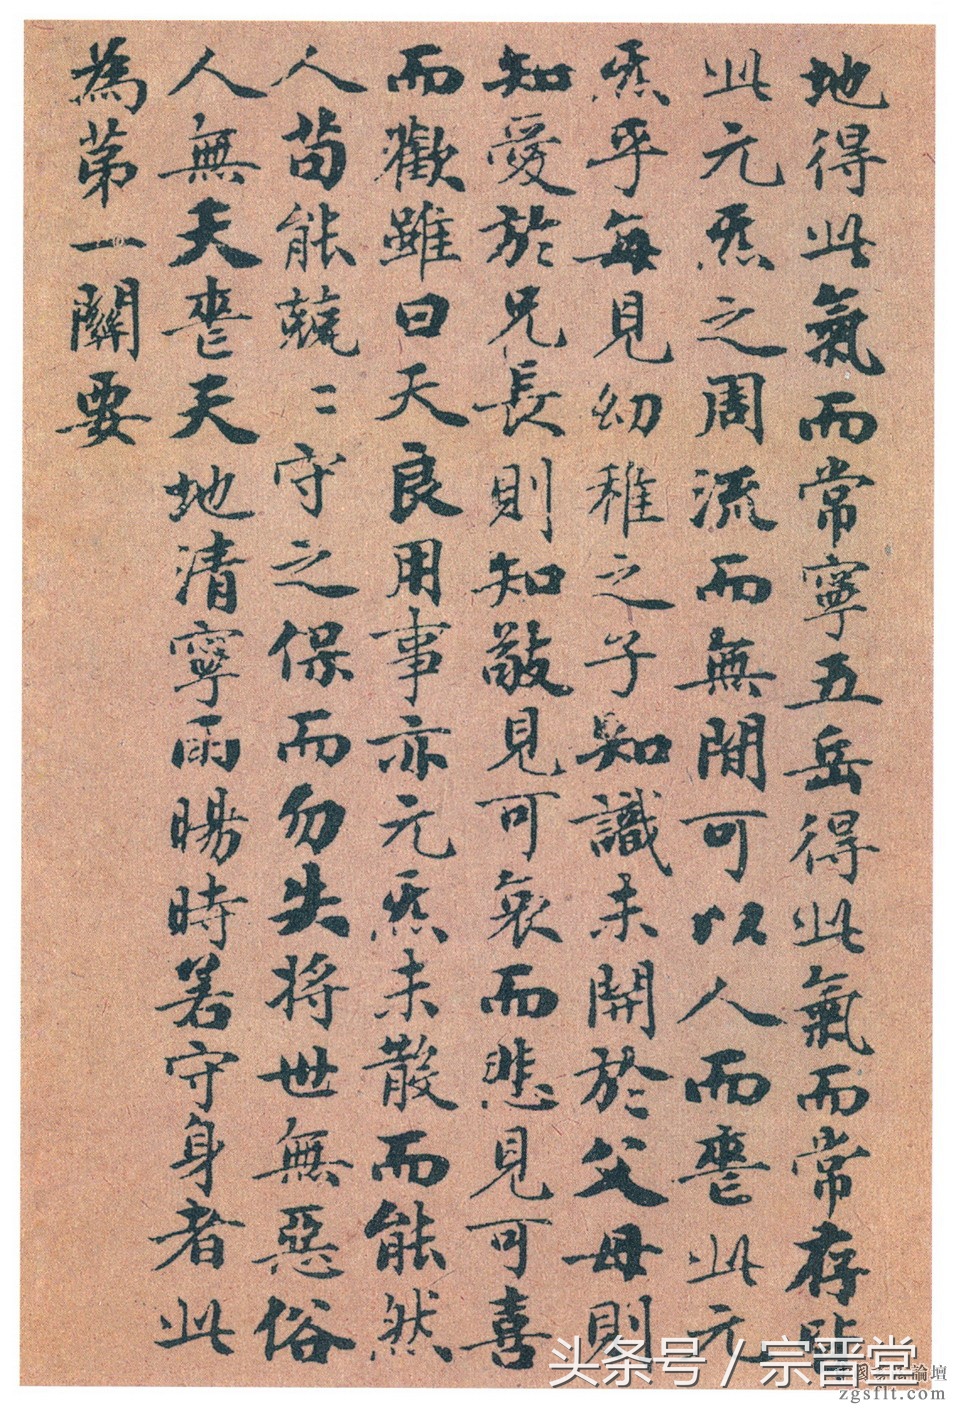 地得此氣而常寧五岳得此氣而常存
此元炁之周流而無閒可以人而喪此元
炁乎每見幼稚之子知識未開於父母則
知愛於兄長則知敬見可哀而悲見可喜
而歡雖曰天良用事亦元炁未散而能然
人苟能兢〻守之保而勿失將世無惡俗
人無夭喪天地清寧雨暘時若守身者此
為第一關要
头条号 / 宗晋堂
論壇
zgsflt.com